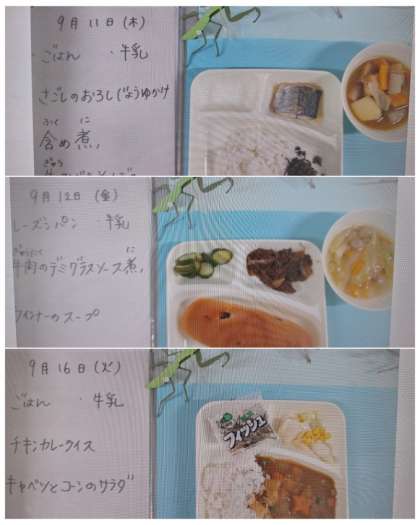 9月11日(木)
ごはん ・牛乳
さごしのおろしじょうゆかけ
ふく に
含め煮
ぎゅう
9月12日(金)
レーズンパン ・牛乳
ぎゅうにく に
牛肉のデミグラスソース煮
ウインナーのスープ
9月16日(火)
ごはん ・牛乳
チキンカレーライス
キャベツとコーンのサラダ
フィッシュ